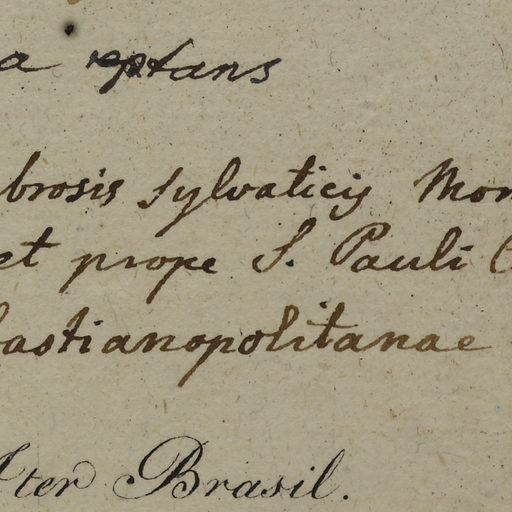 a reptans
brosis sylvaticis Mon
et prope S. Pauli
bastianopolitanae
Iter Brasil.